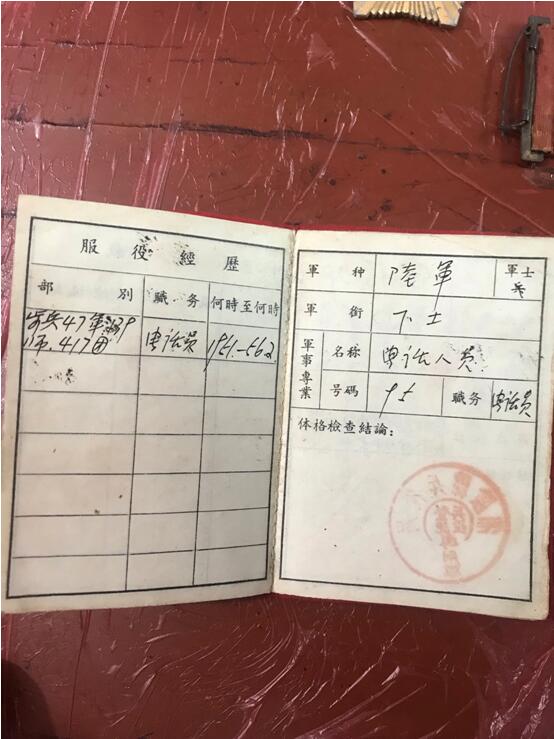 服役經歷
部別 職务 何時至何時
步兵47軍139 电话员 1951.-56.2.
师.417团
軍种 陸軍 軍士兵
軍銜 下士
軍事專業 名称 电话人員
号碼 95 職务 电话員
体格檢查結論: